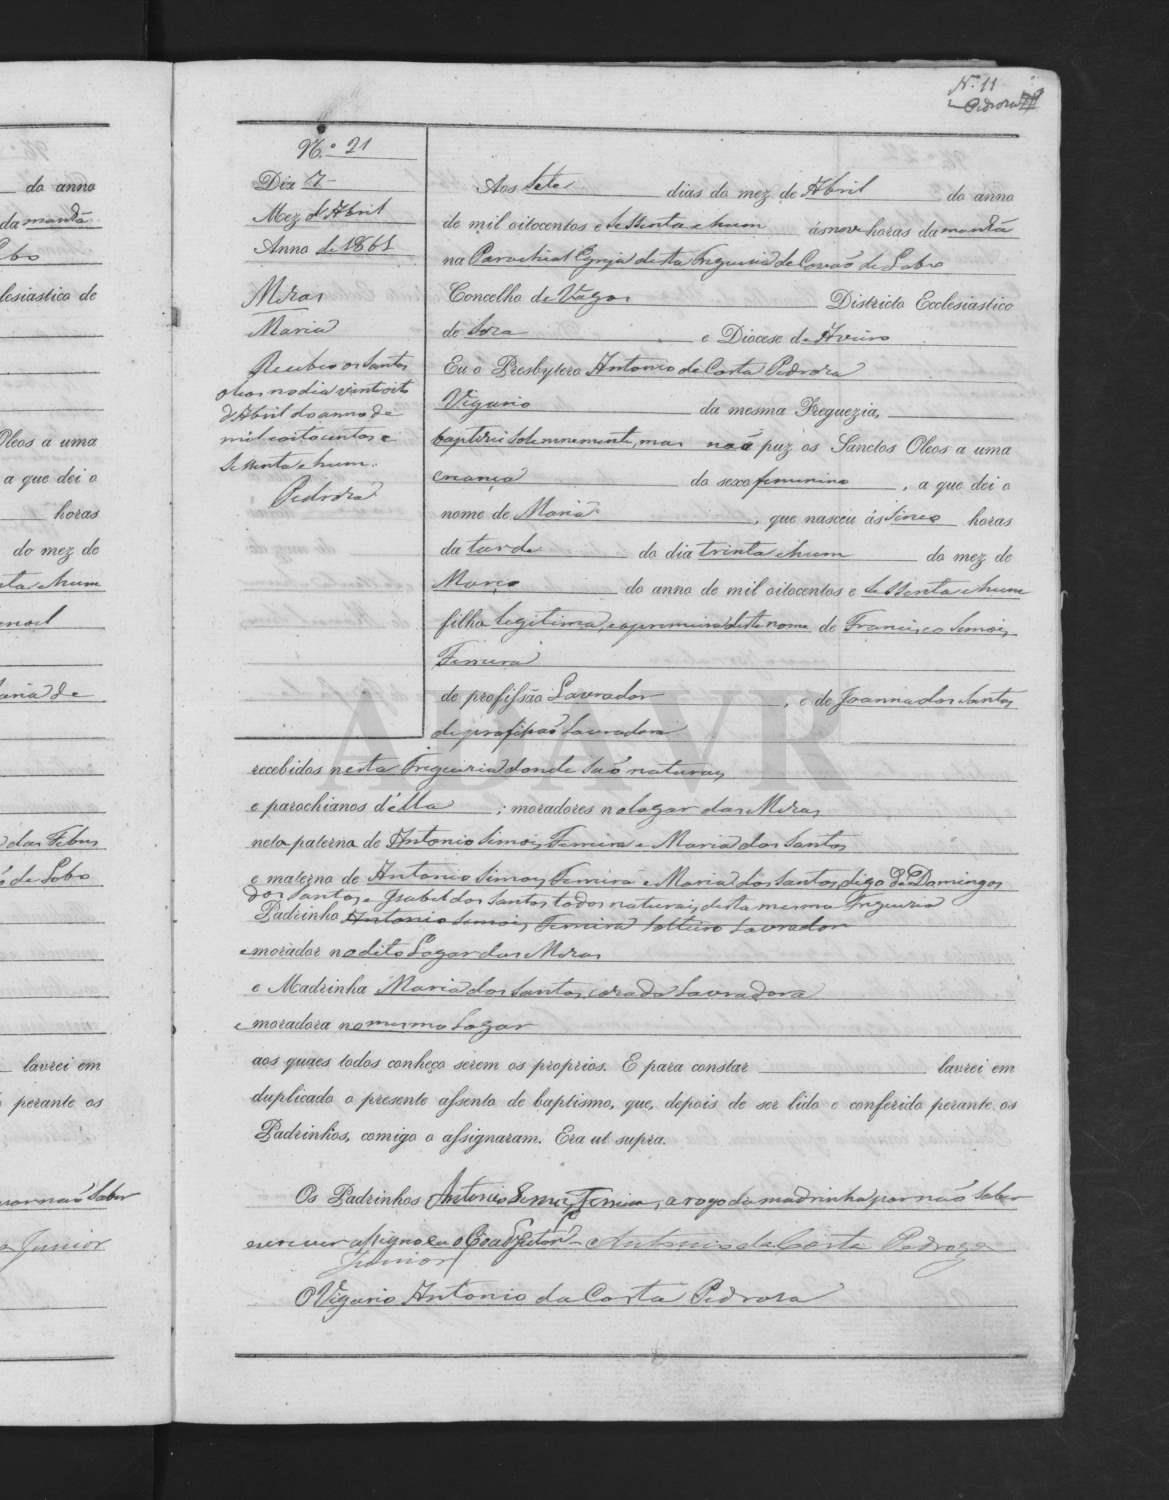 do anno
da manhã
Lobo
lesiastico de
Oleos a uma
a que dei o
horas
do mez de
nta e hum
Maria de
das Febres
de Lobo
lavrei em
perante os
por não saber
Junior
N.º 11
Pedroza
N.º 21
Dia 7
Mez d'Abril
Anno de 1861
Miras
Maria
Recebeo os Santos
oleos no dia vinte oito
d'Abril do anno de
mil e oitocentos e
sessenta e hum.
Pedroza
Aos sete dias do mez de Abril do anno
de mil oitocentos e sessenta e hum ás nove horas da manhã
na Parochial Egreja desta Freguezia de Covão de Lobo
Concelho de Vagos Districto Ecclesiastico
de Soza e Diocese de Aveiro
Eu o Presbytero Antonio da Costa Pedroza
Vigario da mesma Freguezia,
baptizei solemnemente, mas não puz os Sanctos Oleos a uma
criança do sexo feminino, a que dei o
nome de Maria, que nasceu ás sinco horas
da tarde do dia trinta e hum do mez de
Março do anno de mil oitocentos e sessenta e hum
filha legitima, e a primeira deste nome de Francisco Simois
Ferreira
de profissão Lavrador, e de Joanna dos Santos
de profissão Lavradora
recebidos nesta Freguezia donde são naturaes
e parochianos d'ella; moradores no logar das Miras
neta paterna de Antonio Simois Ferreira e Maria dos Santos
e materna de Antonio Simois Ferreira e Maria dos Santos digo de Domingos
dos Santos e Isabel dos Santos todos naturais desta mesma Freguezia
Padrinho Antonio Simois Ferreira Solteiro Lavrador
e morador no dito Logar das Miras
e Madrinha Maria dos Santos, cazada Lavradora
e moradora no mesmo Logar
aos quaes todos conheço serem os proprios. E para constar lavrei em
duplicado o presente assento de baptismo, que, depois de ser lido e conferido perante os
Padrinhos, comigo o assignaram. Era ut supra.
Os Padrinhos Antonio Simois Ferreira, a rogo da madrinha por não saber
escrever assigno eu o Coadjutor Antonio da Costa Pedroza
Junior
O Vigario Antonio da Costa Pedroza
ADAVR